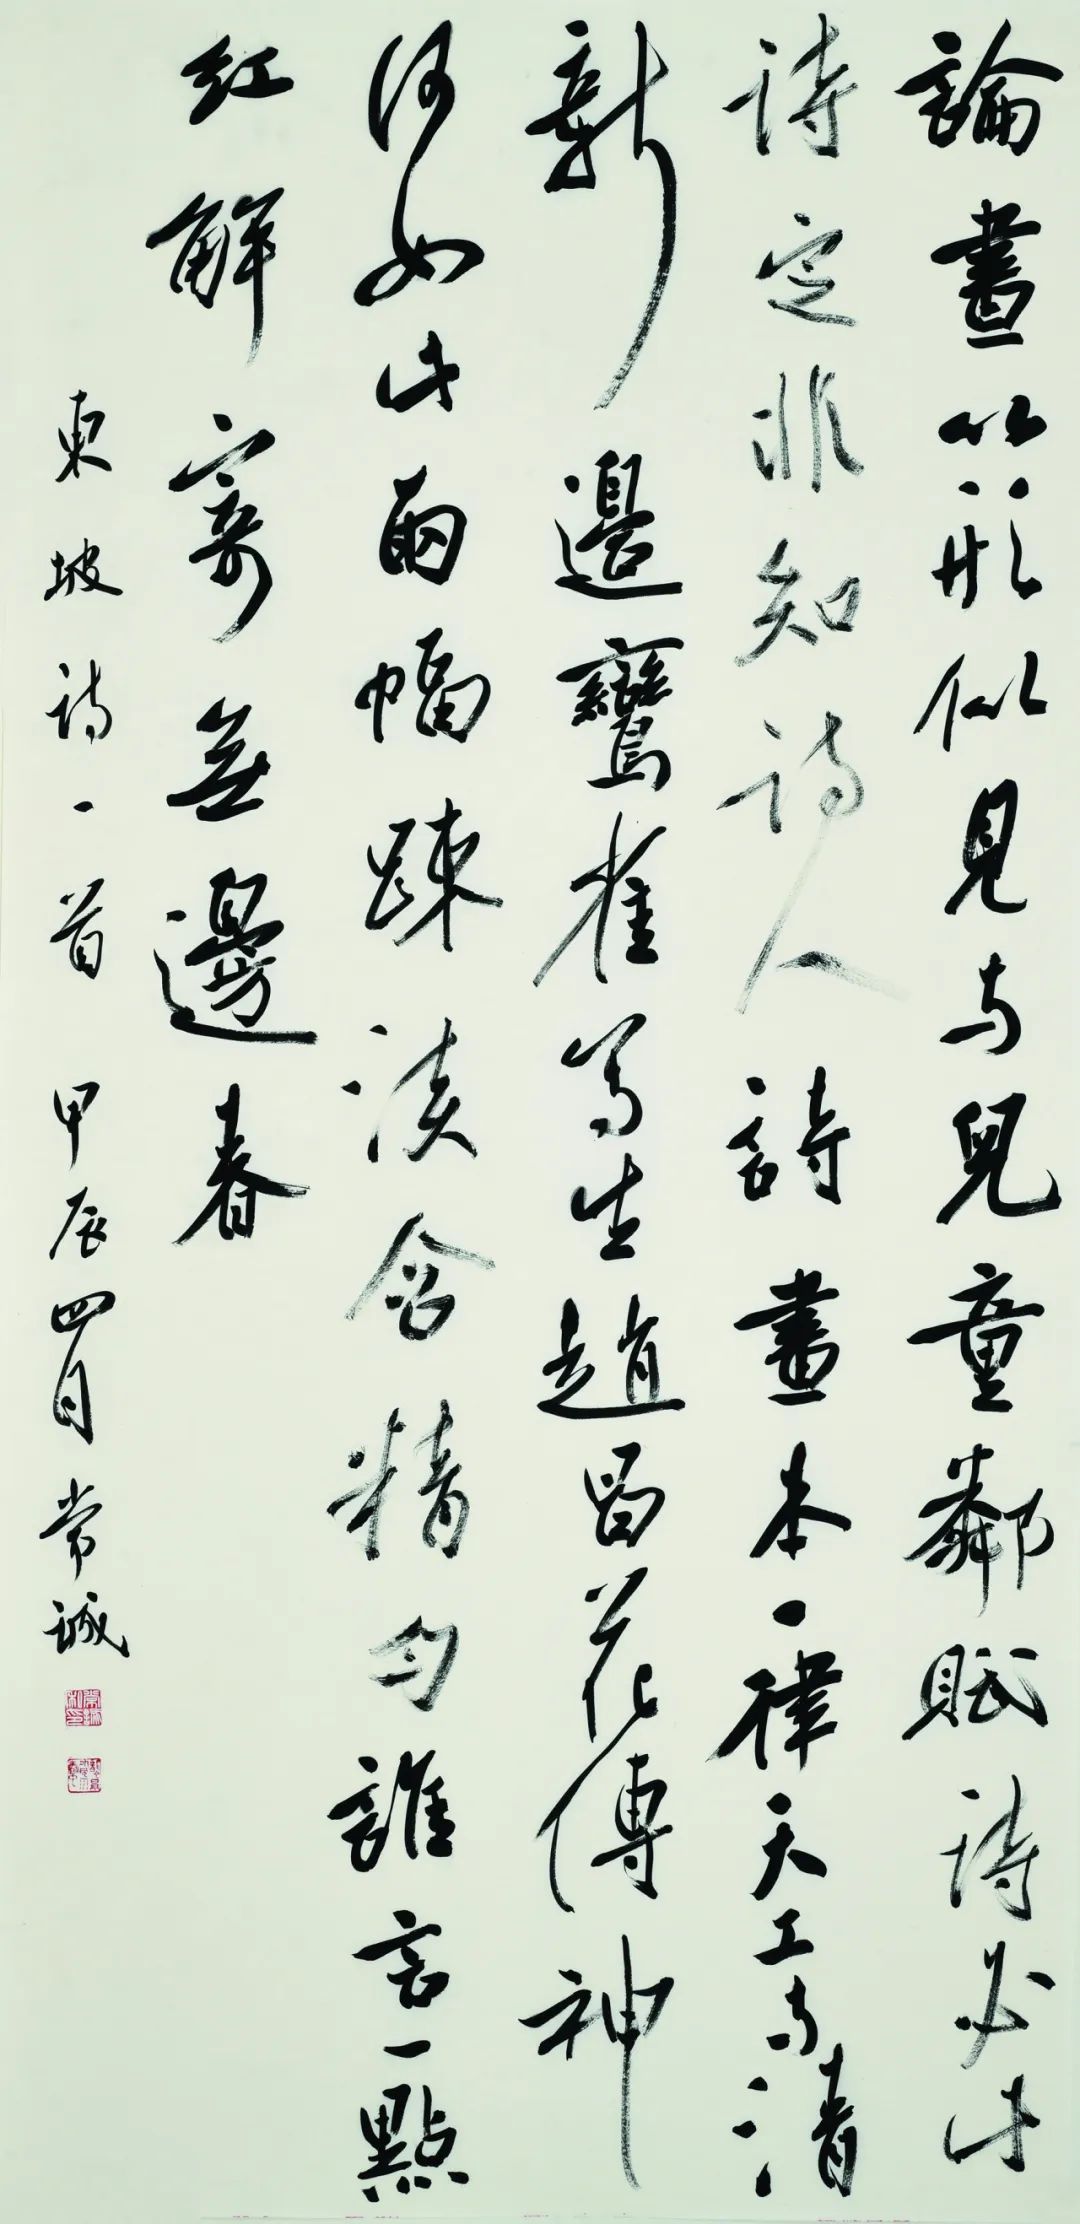 論畫以形似見与兒童鄰賦詩必此
詩定非知詩人詩畫本一律天工与清
新邊鸞雀寫生趙昌花傳神
何如此兩幅踈淡含精勻誰言一點
紅解寄無邊春
東坡詩一首 甲辰四月 常誠